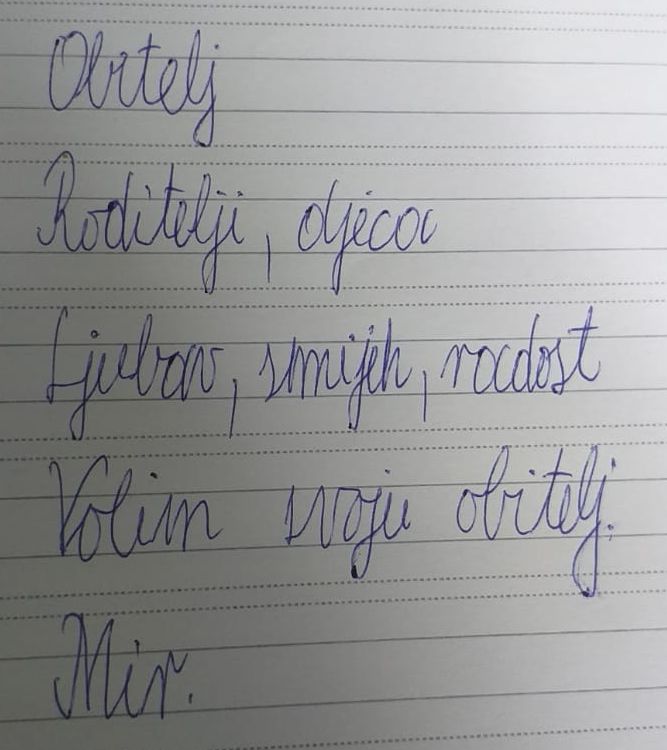 Obitelj
Roditelji, djeca
Ljubav, smijeh, radost
Volim svoju obitelj.
Mir.